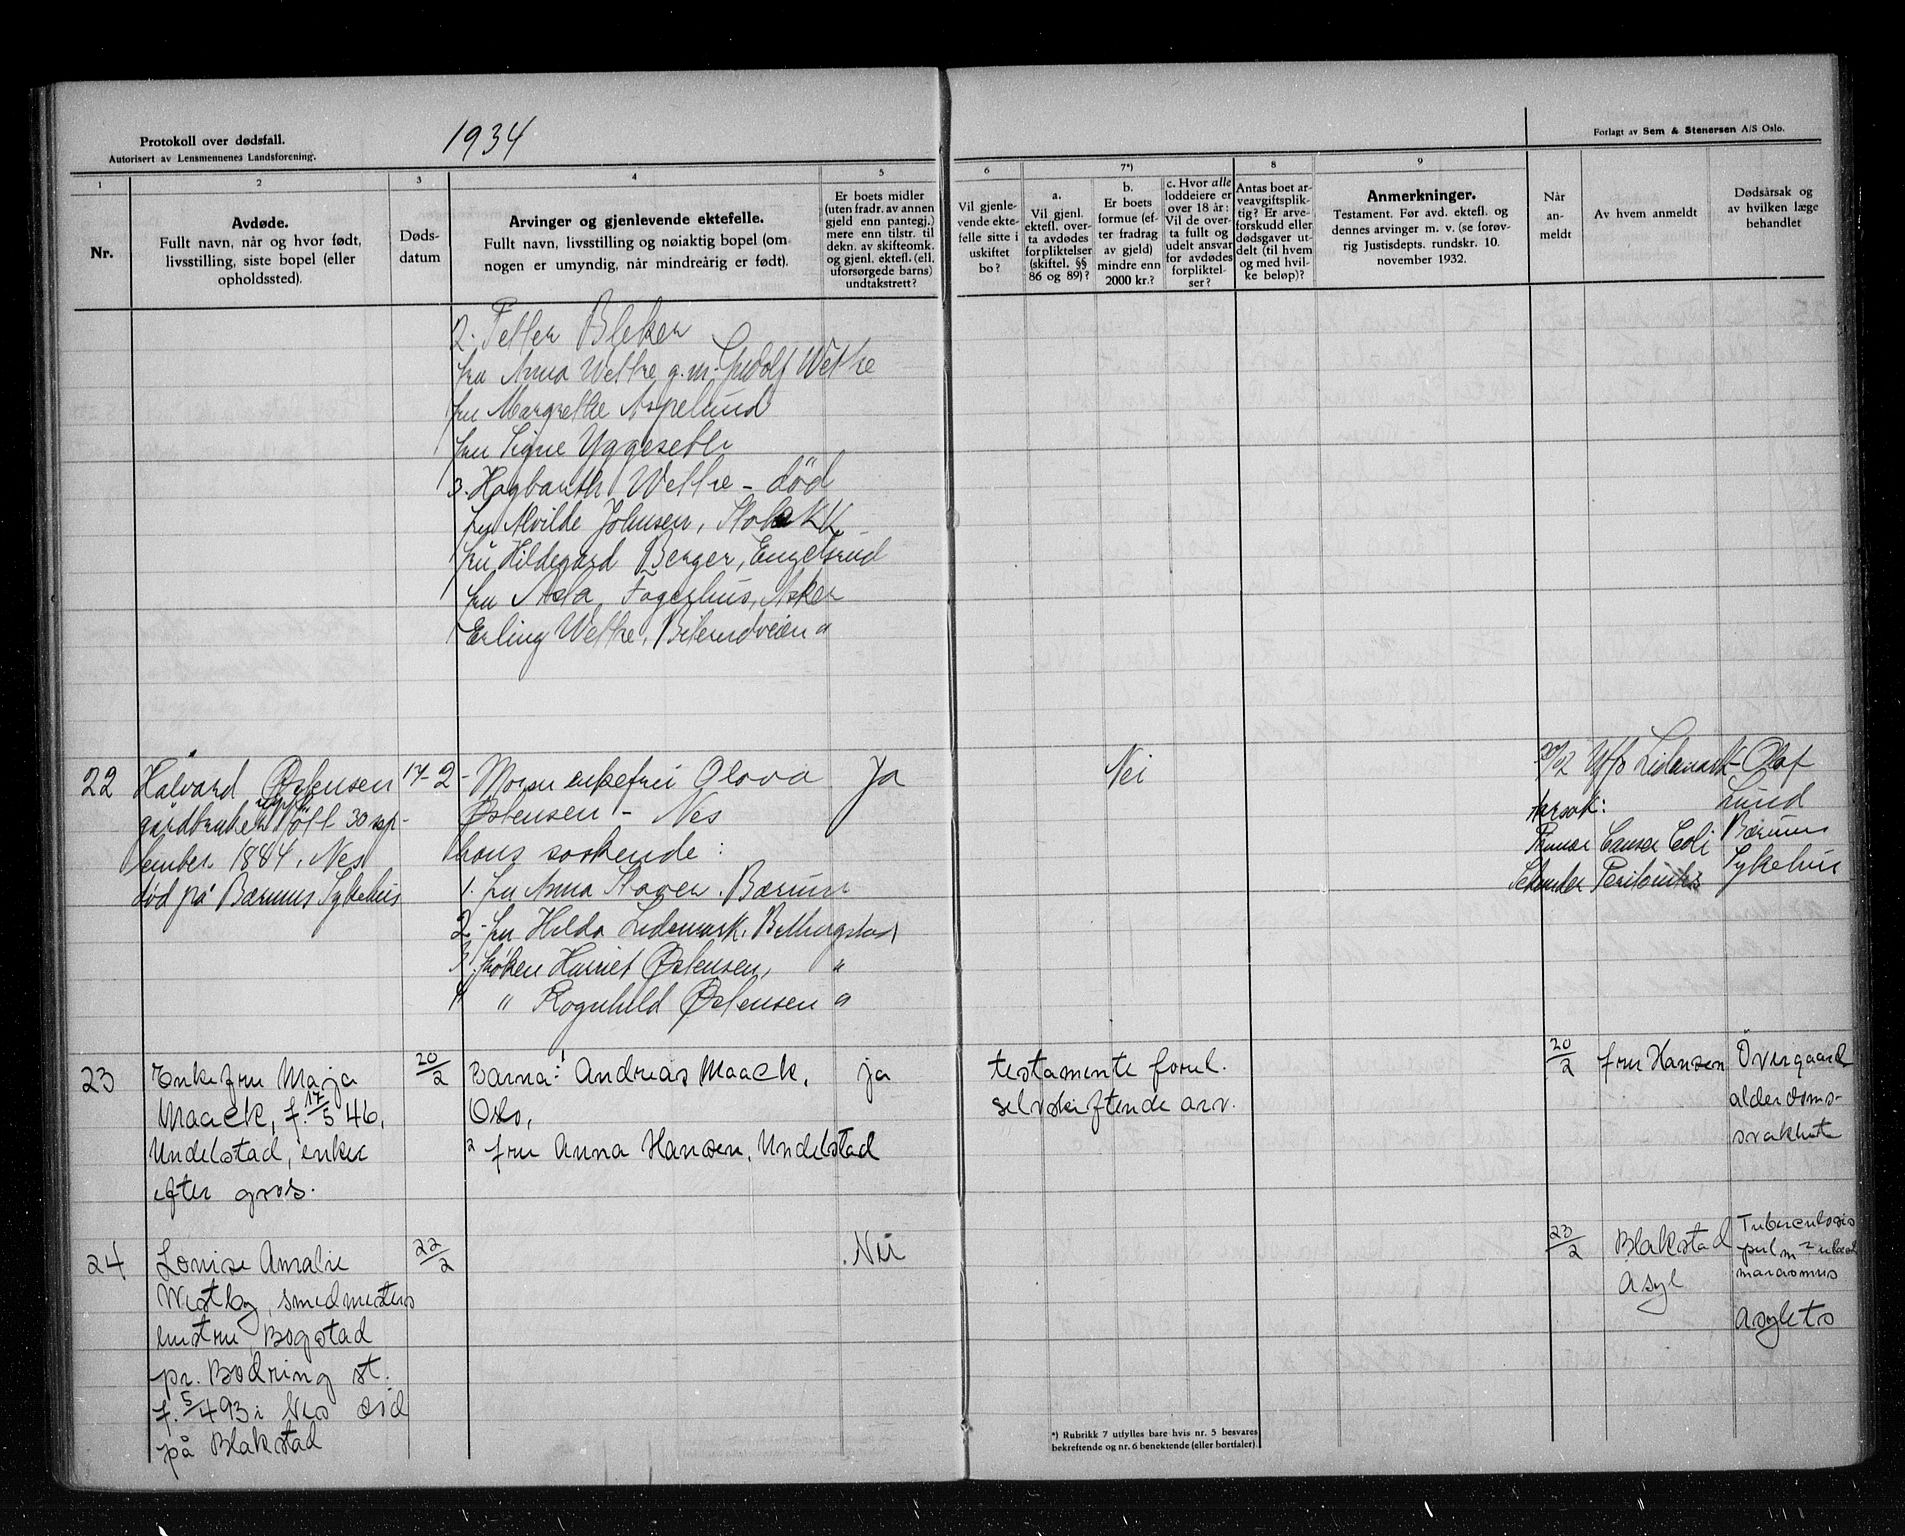 Protokoll over dødsfall.
Autorisert av Lensmennenes Landsforening.
1934
Forlagt av Sem & Stenersen A/S Oslo.
1
2
3
4
5
6
7*)
8
9
Nr.
Avdøde.
Fullt navn, når og hvor født,
livsstilling, siste bopel (eller
opholdssted).
Døds-
datum
Arvinger og gjenlevende ektefelle.
Fullt navn, livsstilling og nøiaktig bopel (om
nogen er umyndig, når mindreårig er født).
Er boets midler
(uten fradr. av annen
gjeld enn pantegj.)
mere enn tilstr. til
dekn. av skifteomk.
og gjenl. ektefl. (ell.
uforsørgede barns)
undtakstrett?
Vil gjenle-
vende ekte-
felle sitte i
uskiftet
bo?
a.
Vil gjenl.
ektefl. over-
ta avdødes
forpliktelser
(skiftel. §§
86 og 89)?
b.
Er boets
formue (ef-
ter fradrag
av gjeld)
mindre enn
2000 kr.?
c. Hvor alle
loddeiere er
over 18 år:
Vil de over-
ta fullt og
udelt ansvar
for avdødes
forpliktel-
ser?
Antas boet ar-
veavgiftsplik-
tig? Er arve-
forskudd eller
dødsgaver ut-
delt (til hvem
og med hvil-
ke beløp)?
Anmerkninger.
Testament. Før avd. ektefl. og
dennes arvinger m. v. (se forøv-
rig Justisdepts. rundskr. 10.
november 1932.
Når
an-
meldt
Av hvem anmeldt
Dødsårsak og
av hvilken læge
behandlet
2. Petter Bleker
fru Anna Wettre g.m. Wettre
fru Margrethe Aspelund
fru Signe Yggesetli
3. Hagbarth Wettre - død
fru Alvilde Johnsen,
fru Hildegard Berger, Engelsrud
fru Asta Fagerhus, Asker
Erling Wettre, "
22
Halvard Østensen
gårdbruker født 30 sep-
tember 1884, Nes
død på Bærums Sykehus
17-2
Moren enkefru Olava
Østensen - Nes
hans søskende:
1. fru Anna Staver. Bærum
2. fru Hilda Lidemark,
3. frøken Harriet Østensen, "
4 " Ragnhild Østensen "
Ja
Nei
20/2
Lidemark
Olaf
Lund
Bærums
Sykehus
Aarsak:
Primær Cancer Coli
Sekundær Peritonitis
23
Enkefru Maja
Maack, f. 17/5 46,
Undelstad, enke
efter gros.
20/2
Barna: 1 Andreas Maack,
Oslo,
2 fru Anna Hansen, Undelstad
ja
testamente forel.
selvskiftende arv.
20/2
fru Hansen
Övergaard
alderdoms-
svakhet
24
Louise Amalie
Westby, smedmesters
hustru, Bogstad
pr. Bødring st.
f. 5/4 93 i Nes død
på Blakstad
22/2
Nei
23/2
Blakstad
Asyl
Tuberculosis
pulm
marasmus
Asylets
*) Rubrikk 7 utfylles bare hvis nr. 5 besvares
bekreftende og nr. 6 benektende (eller bortfaler).